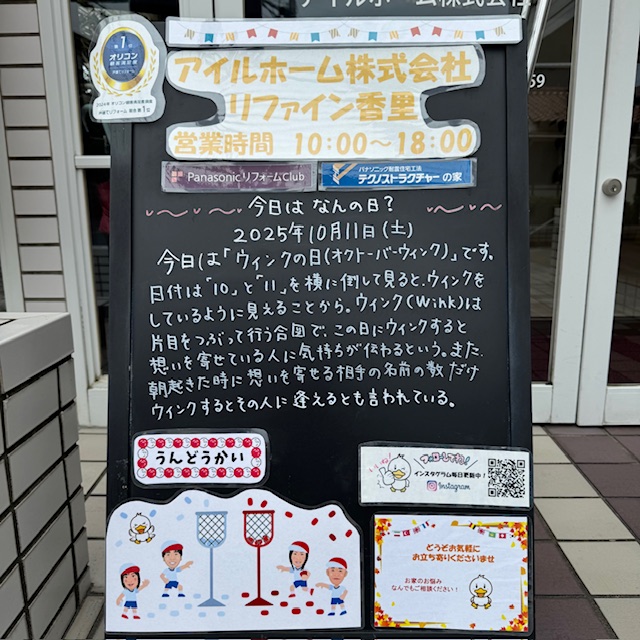 アイルホーム株式会社
No.1
オリコン
顧客満足度
アイルホーム株式会社
リファイン香里
営業時間 10:00〜18:00
Panasonic リフォームClub
パナソニック耐震住宅工法
テクノストラクチャーの家
59
今日は なんの日?
2025年10月11日(土)
今日は「ウィンクの日(オクトーバーウィンク)」です。
日付は"10"と"11"を横に倒して見ると、ウィンクを
しているように見えることから。ウィンク(Wink)は
片目をつぶって行う合図で、この日にウィンクすると
想いを寄せている人に気持ちが伝わるという。また、
朝起きた時に想いを寄せる相手の名前の数だけ
ウィンクするとその人に逢えるとも言われている。
うんどうかい
フォローしてね!
インスタグラム毎日更新中!
Instagram
どうぞお気軽に
お立ち寄りくださいませ
お家のお悩み
なんでもご相談ください!